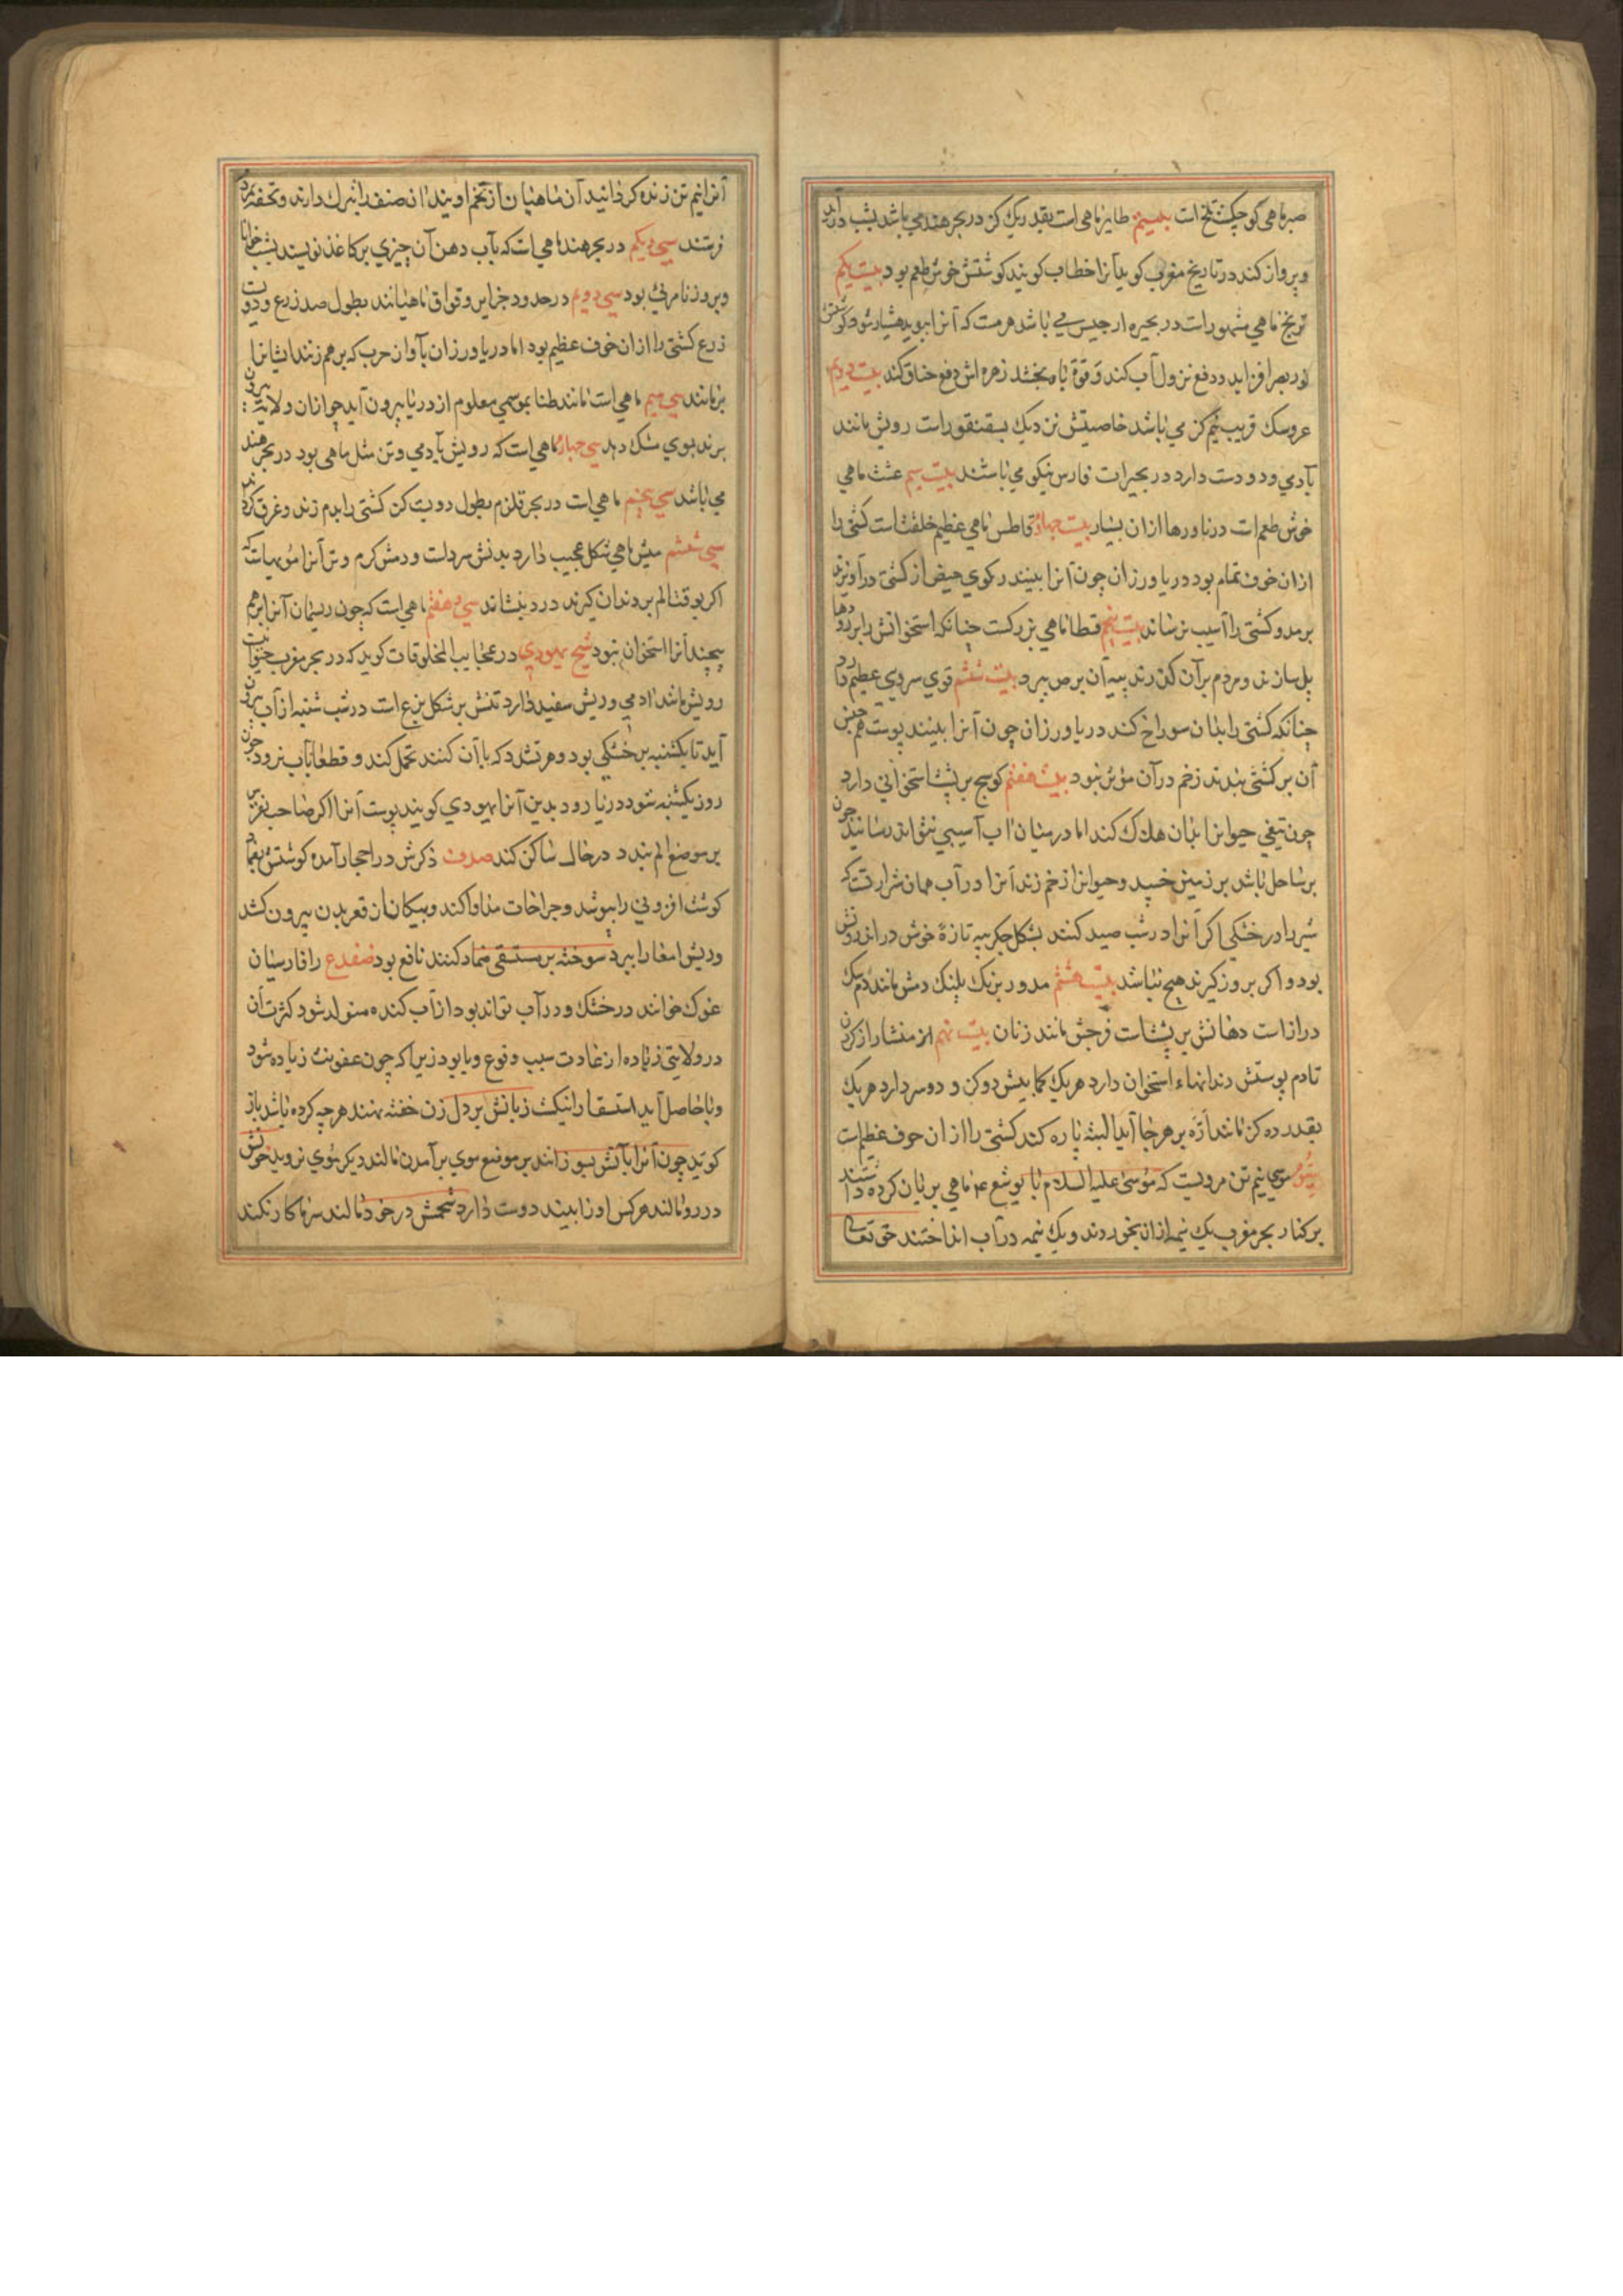 صبر ماهی کوچکست تلخ است بیستم طایر ماهی است بقدر یک کز در بحر هند می باشد بشب درآید
و پرواز کند در تاریخ مغرب کوید آنرا خطاب کویند کوشتش خوش طعم بود بیست یکم
ترنج ماهی مشهور است در بحیره ارجیس می باشد هر مست که آنرا بوید هشیار شود کوشتش
نور بصر افزاید و دفع نزول آب کند و قوة باه بخشد زهره اش دفع خناق کند بیست دویم
عروسک قریب نیم کز می باشد خاصیتش نزدیک بسقنقور است رویش مانند
آدمی و دو دست دارد در بحیرات فارس نیکو می باشند بیست سیم عنت ماهی
خوش طعم است در ناورها ازان بسیار بیست چهارم قاطس ماهی عظیم خلقت است کشتی را
ازان خوف تمام بود دریاورزان چون آنرا بینند رکوی حیض از کشتی درآویزند
برمد و کشتی را آسیب نرساند بیست پنجم قطا ماهی بزرکست چنانکه استخوانش را بر رودها
پل سازند و مردم بر آن کذرند پیه آن برص ببرد بیست ششم قوی سروی عظیم دارد
چنانکه کشتی را بدان سوراخ کند دریاورزان چون آنرا بینند پوست هم جنس
آن بر کشتی بندند زخم در آن مؤثر نبود بیست هفتم کوسج بر پشت استخوانی دارد
چون تیغی حیوانرا بدان هلاک کند اما در میان آب آسیبی نتواند رسانید چون
بر ساحل باشد بر زمین خسپد و حیوانرا زخم زند آنرا در آب همان شرارتست که
شیر را در خشکی اکر آنرا در شب صید کنند بشکل جکر پیه تازه خوش در اندرونش
بود و اکر بروز کیرند هیچ نباشد بیست هشتم مدور برنک پلنک دمش مانند دم سک
دراز است دهانش بر پشت است فرجش مانند زنان بیست نهم منشار از کردن
تا دم پوستش دندانهاء استخوان دارد هر یک کمابیش دو کز و دو سر دارد هر یک
بقدر ده کز مانند اره بر هر جا آید البته پاره کند کشتی را ازان خوف عظیم است
موسی نیم تن مرویست که موسی علیه السلام با یوشع ع ماهی بریان کرده داشتند
بر کنار بحر مغرب یک نیمه ازان بخوردند و یک نیمه در آب انداختند حق تعالی
آنرا نیم تن زنده کردانید آن ماهیان از تخم اویند آن صنف را تبرک دارند و تحفه برند
فرستند سی و یکم در بحر هند ماهی است که بآب دهن آن چیزی بر کاغذ نویسند بشب خوانا
و بروز نامرئی بود سی دویم در حدود جزایر وقواق ماهیانند بطول صد زرع و دویست
ذرع کشتی را ازان خوف عظیم بود اما دریاورزان بآواز حرب که بر هم زنند ایشانرا
برمانند سی سیم ماهی است مانند طناب بموسمی معلوم از دریا بیرون آید جوانان ولایت بیرون
برند بوی مشک دهد سی چهارم ماهی است که رویش بآدمی و تن مثل ماهی بود در بحر هند
می باشد سی پنجم ماهی است در بحر قلزم بطول دویست کز کشتی را بدم زند و غرق کرداند
سی ششم میش ماهی شکل عجیب دارد بدنش سرد است و دمش کرم و تن آنرا مومیاست که
اکر بوقت الم بر دندان کیرند درد بنشاند سی و هفتم ماهی است که چون ریسمان آنرا بر هم
پیچند آنرا استخوان نبود شیخ یهودی در عجایب المخلوقات کوید که در بحر مغرب حیوانیست
رویش مانند آدمی و ریش سفید دارد تنش بر شکل بزغ است در شب شنبه از آب بیرون
آید تا یکشنبه بر خشکی بود و هر تشدد که با آن کنند تحمل کند و قطعا بآب نرود چون
روز یکشنبه شود در دریا رود بدین آنرا یهودی کویند پوست آنرا اکر صاحب نقرس
بر موضع الم بندد در حال ساکن کند صدف ذکرش در احجار آمده کوشتش
کوشت افزونی را بپوشد و جراحات مداوا کند و پیکان از قعر بدن بیرون کشد
و ریش امعا را ببرد سوخته بر مستسقی ضماد کنند نافع بود ضفدع را فارسیان
غوک خوانند در خشک و در آب تواند بود از آب کنده متولد شود کثرت آن
در ولایتی زیاده از عادت سبب وقوع وبا بود زیرا که چون عفونت زیاده شود
وبا حاصل آید استسقا را نیکست زبانش بر دل زن خفته نهند هر چه کرده باشد باز
کوید چون آنرا بآتش بسوزانند بر موضع موی برآمدن مالند دیکر موی نروید خونش
در رو مالند هر کس او را بیند دوست دارد شحمش در خود مالند سرما کار نکند